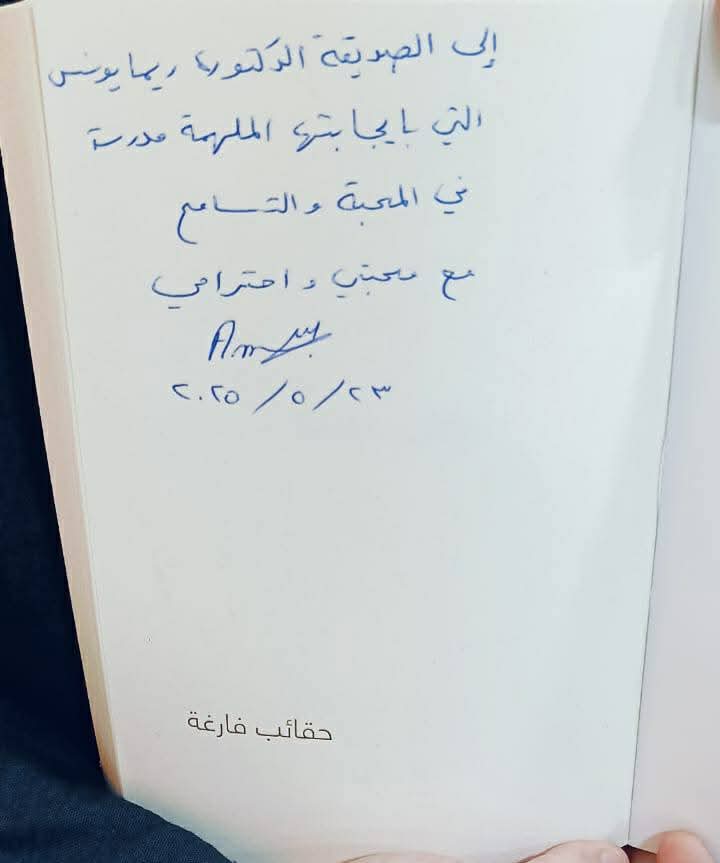 إلى الصديقة الدكتورة ريما يونس
التي بايجابتها الملهمة مدرسة
في المحبة والتسامح
مع محبتي واحترامي
٢٠٢٥/٥/٢٣
حقائب فارغة